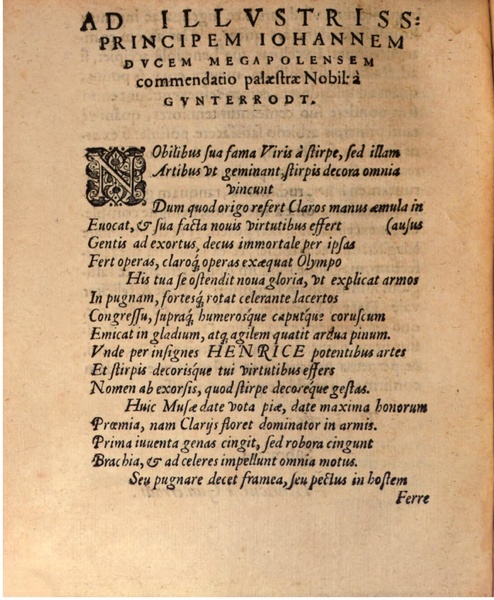 AD ILLVSTRISS:
PRINCIPEM IOHANNEM
DVCEM MEGAPOLENSEM
commendatio palæstræ Nobil: à
GVNTERRODT.
NObilibus sua fama Viris à stirpe, sed illam
Artibus vt geminant, stirpis decora omnia
vincunt
Dum quod origo refert Claros manus æmula in
Euocat, & sua facta nouis virtutibus effert (ausus
Gentis ad exortus, decus immortale per ipsas
Fert operas, claroq́; operas exæquat Olympo
His tua se ostendit noua gloria, vt explicat armos
In pugnam, fortesq́; rotat celerante lacertos
Congressu, supraq́; humerosque caputque coruscum
Emicat in gladium, atq́; agilem quatit ardua pinum.
Vnde per insignes HENRICE potentibus artes
Et stirpis decorisque tui virtutibus effers
Nomen ab exorsis, quod stirpe decoreque gestas.
Huic Musæ date vota piæ, date maxima honorum
Præmia, nam Clarijs floret dominator in armis.
Prima iuuenta genas cingit, sed robora cingunt
Brachia, & ad celeres impellunt omnia motus.
Seu pugnare decet framea, seu pectus in hostem
Ferre